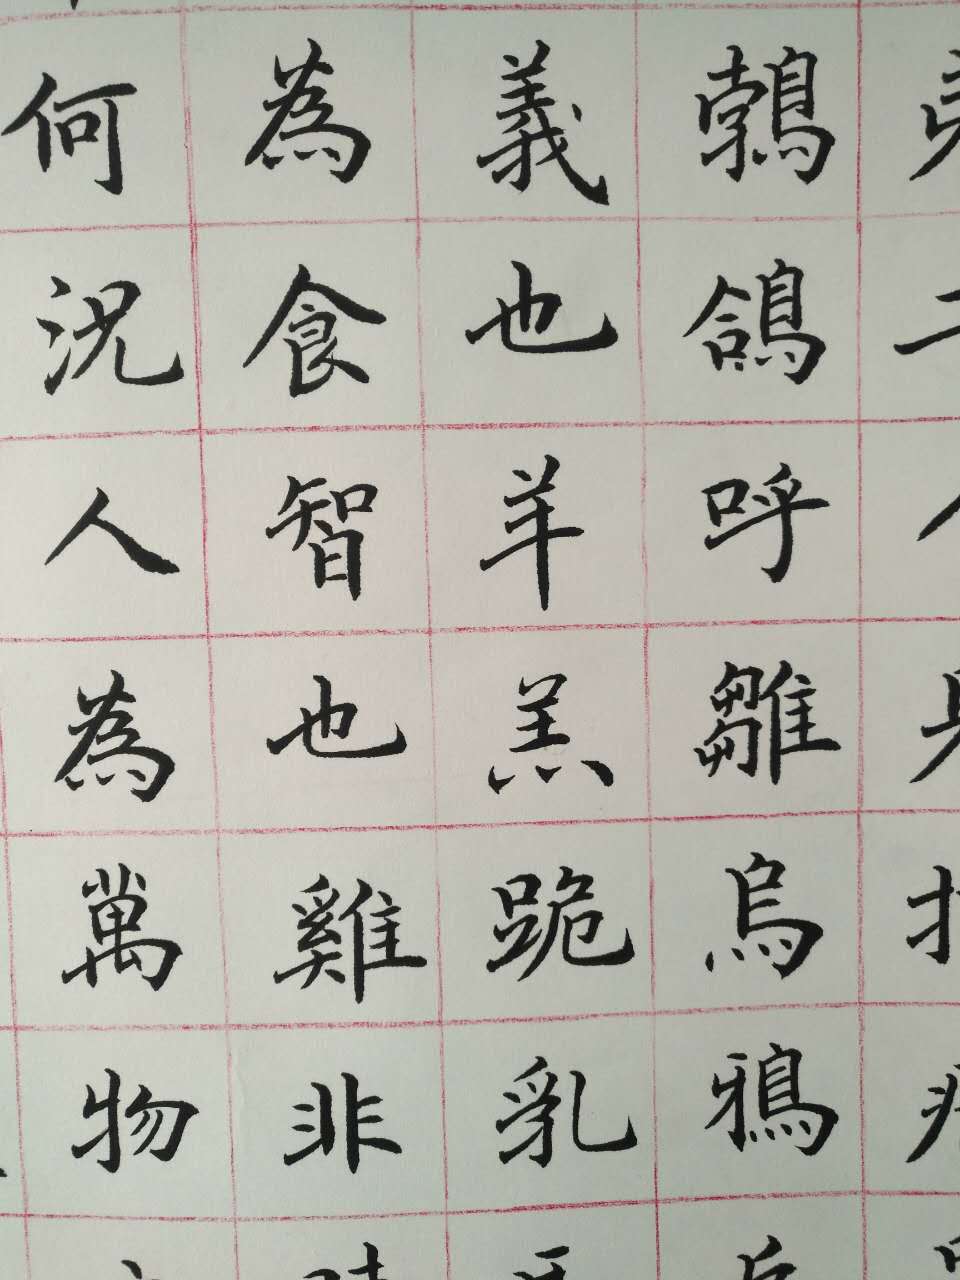 鶉鴿呼雛烏鴉
義也羊羔跪乳
為食智也雞非
何況人為萬物